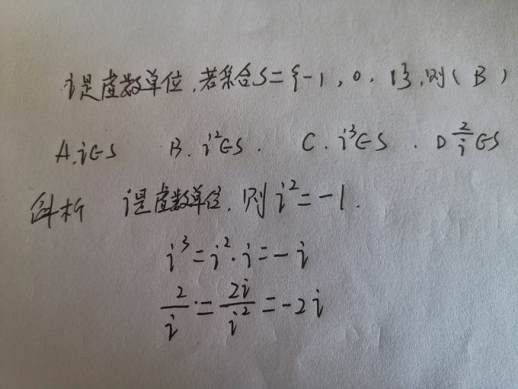 i是虚数单位,若集合S={-1,0.1},则(B)
A.i∈S B.i²∈S. C.i³∈S. D 2/i∈S
解析 i是虚数单位,则i²=-1.
i³=i²·i=-i
2/i=2i/i²=-2i